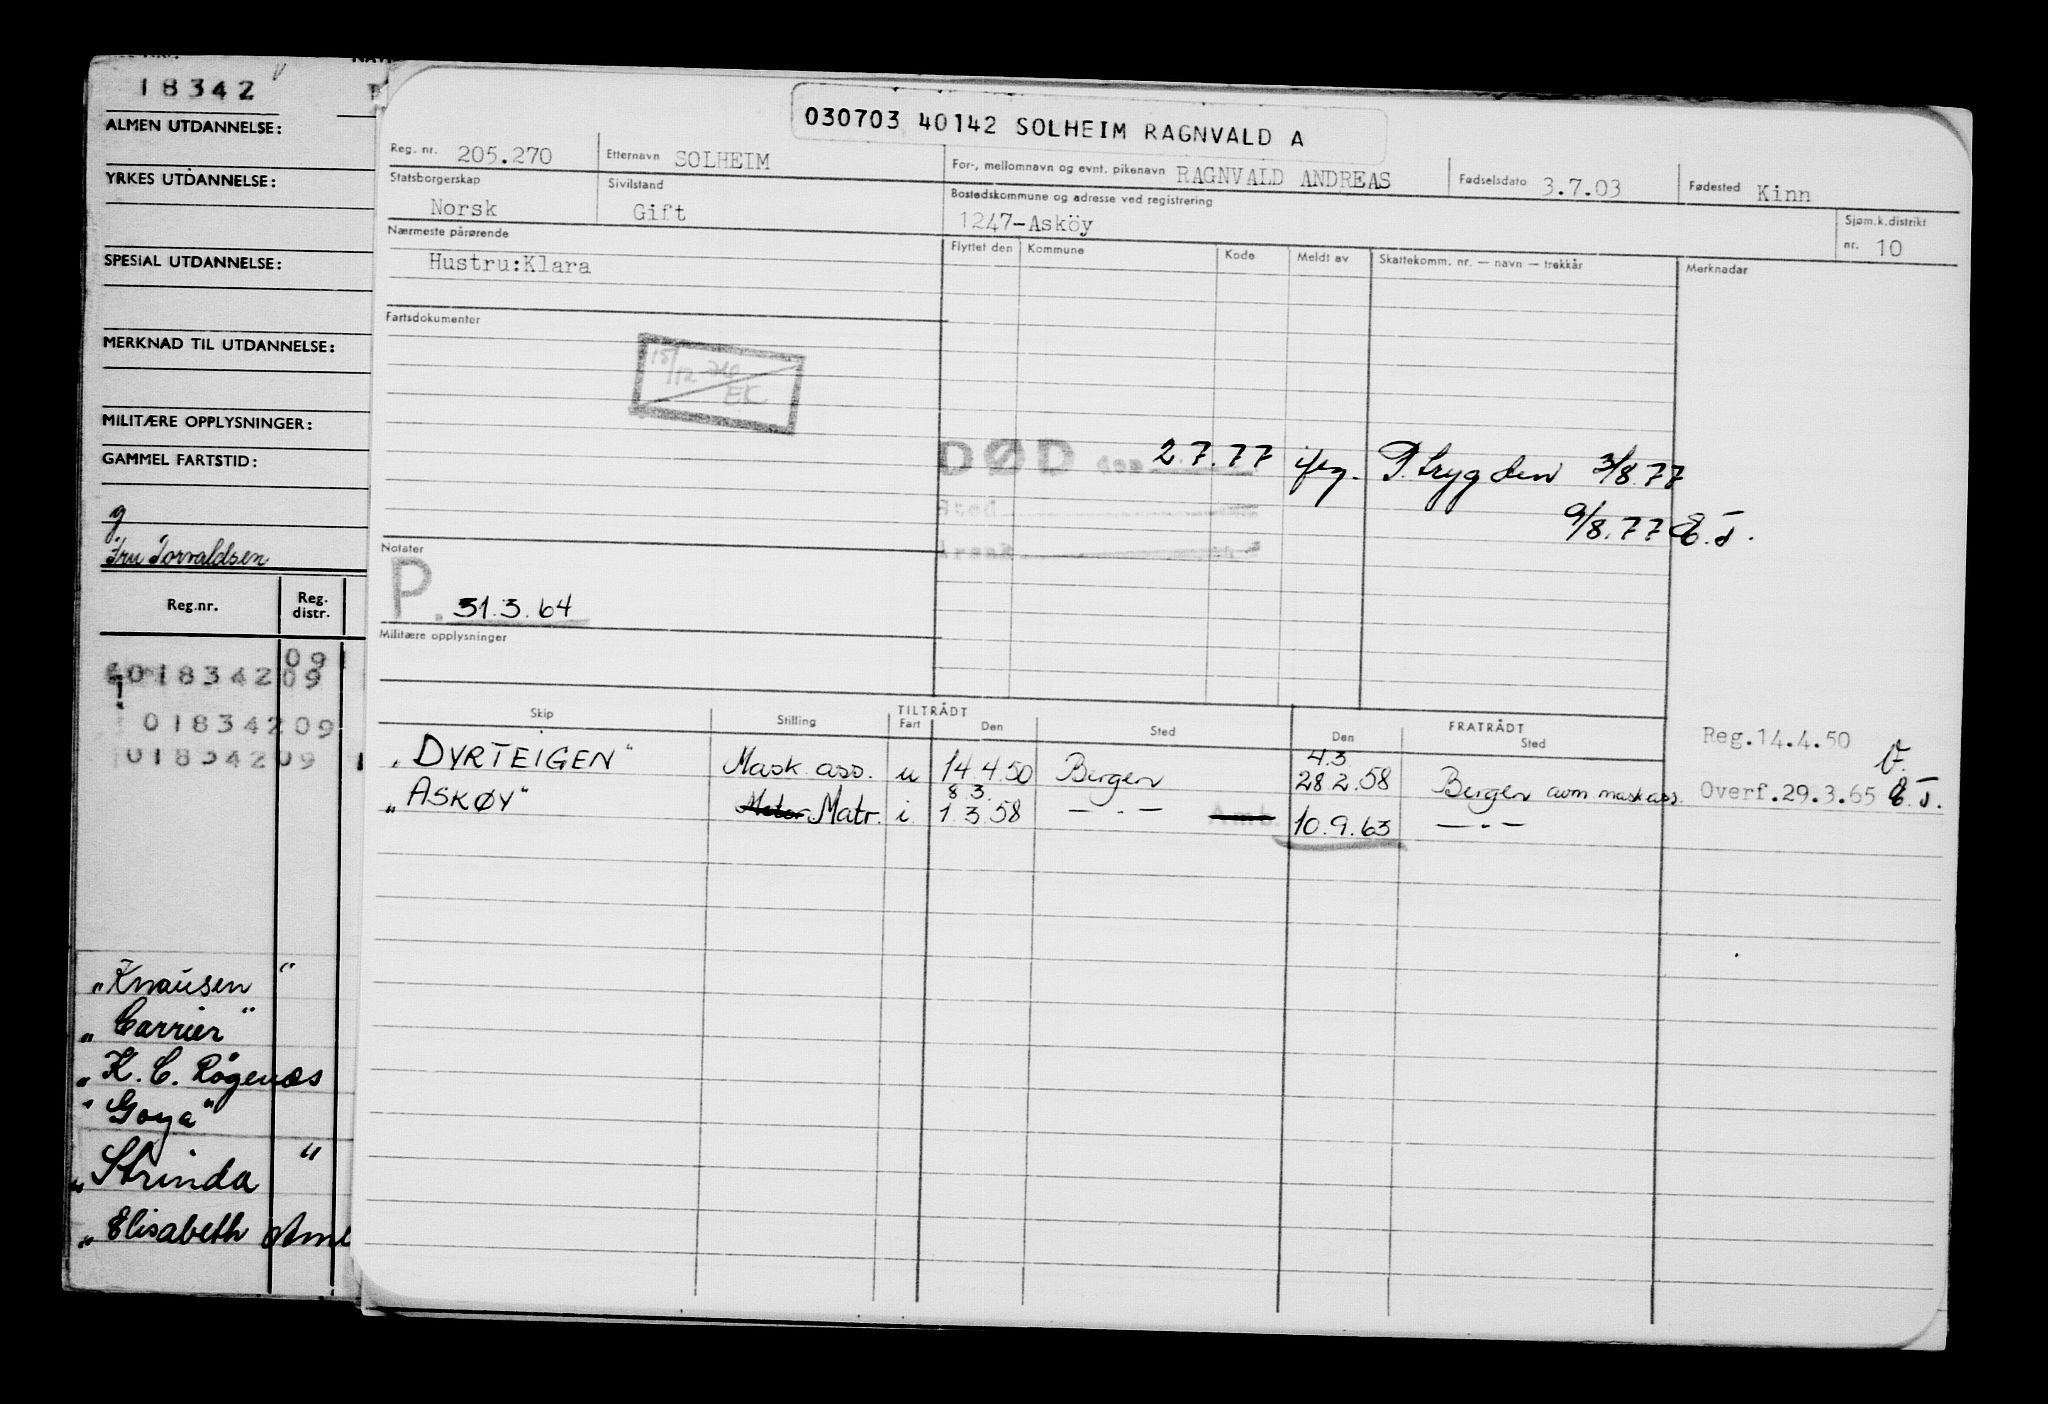 18342
ALMEN UTDANNELSE:
YRKES UTDANNELSE:
SPESIAL UTDANNELSE:
MERKNAD TIL UTDANNELSE:
MILITÆRE OPPLYSNINGER:
GAMMEL FARTSTID:
g
Fru Torvaldsen
Reg.nr. Reg. distr.
09
01834209
01834209
01834209
"Knausen"
"Carrier"
"K. C. Rogenæs
"Goya"
"Strinda"
"Elisabeth
030703 40142 SOLHEIM RAGNVALD A
Reg. nr. 205.270 Etternavn SOLHEIM For-, mellomnavn og evnt. pikenavn RAGNVALD ANDREAS Fødselsdato 3.7.03 Fødested Kinn
Statsborgerskap Norsk Sivilstand Gift Bostedskommune og adresse ved registrering 1247-Asköy Sjøm.k.distrikt nr. 10
Nærmeste pårørende Flyttet den Kommune Kode Meldt av Skattekomm. nr. — navn — trekkår Merknader
Hustru:Klara
Fartsdokumenter
15/12
EK
DØD den 2.7.77 ifлg. P.trygden 3/8.77
Sted
9/8.77 E.T.
Årsak
Notater
P. 31.3.64
Militære opplysninger
Skip Stilling TILTRÅDT Fart Den Sted FRATRÅDT Den Sted
Reg.14.4.50
"DYRTEIGEN" Mask. ass. u 14.4.50 Bergen 4.3 28.2.58 Bergen avm mask ass. Overf.29.3.65 E.T.
"ASKØY" Matr. i 8 3. 1.3.58 — " — Amb. 10.9.63 — " —